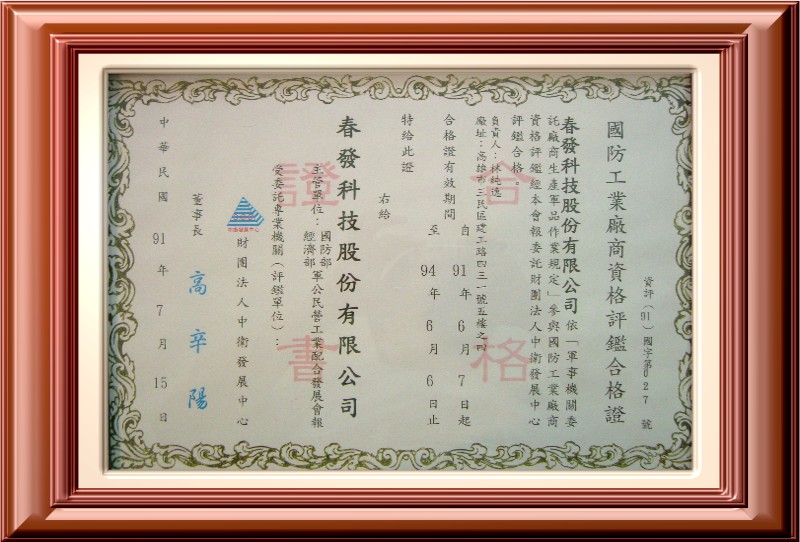 國防工業廠商資格評鑑合格證
資評（91）國字第027號
春發科技股份有限公司依「軍事機關委
託廠商生產軍品作業規定」參與國防工業廠商
資格評鑑經本會報委託財團法人中衛發展中心
評鑑合格。
負責人：林純逸
廠址：高雄市三民區建工路四三一號五樓之四
合格證有效期間
自91年6月7日起
至94年6月6日止
特給此證
右給
春發科技股份有限公司
主管單位：國防部
經濟部
軍公民營工業配合發展會報
受委託專業機關（評鑑單位）：
中衛發展中心
財團法人中衛發展中心
董事長 高辛陽
中華民國91年7月15日
合格
證書